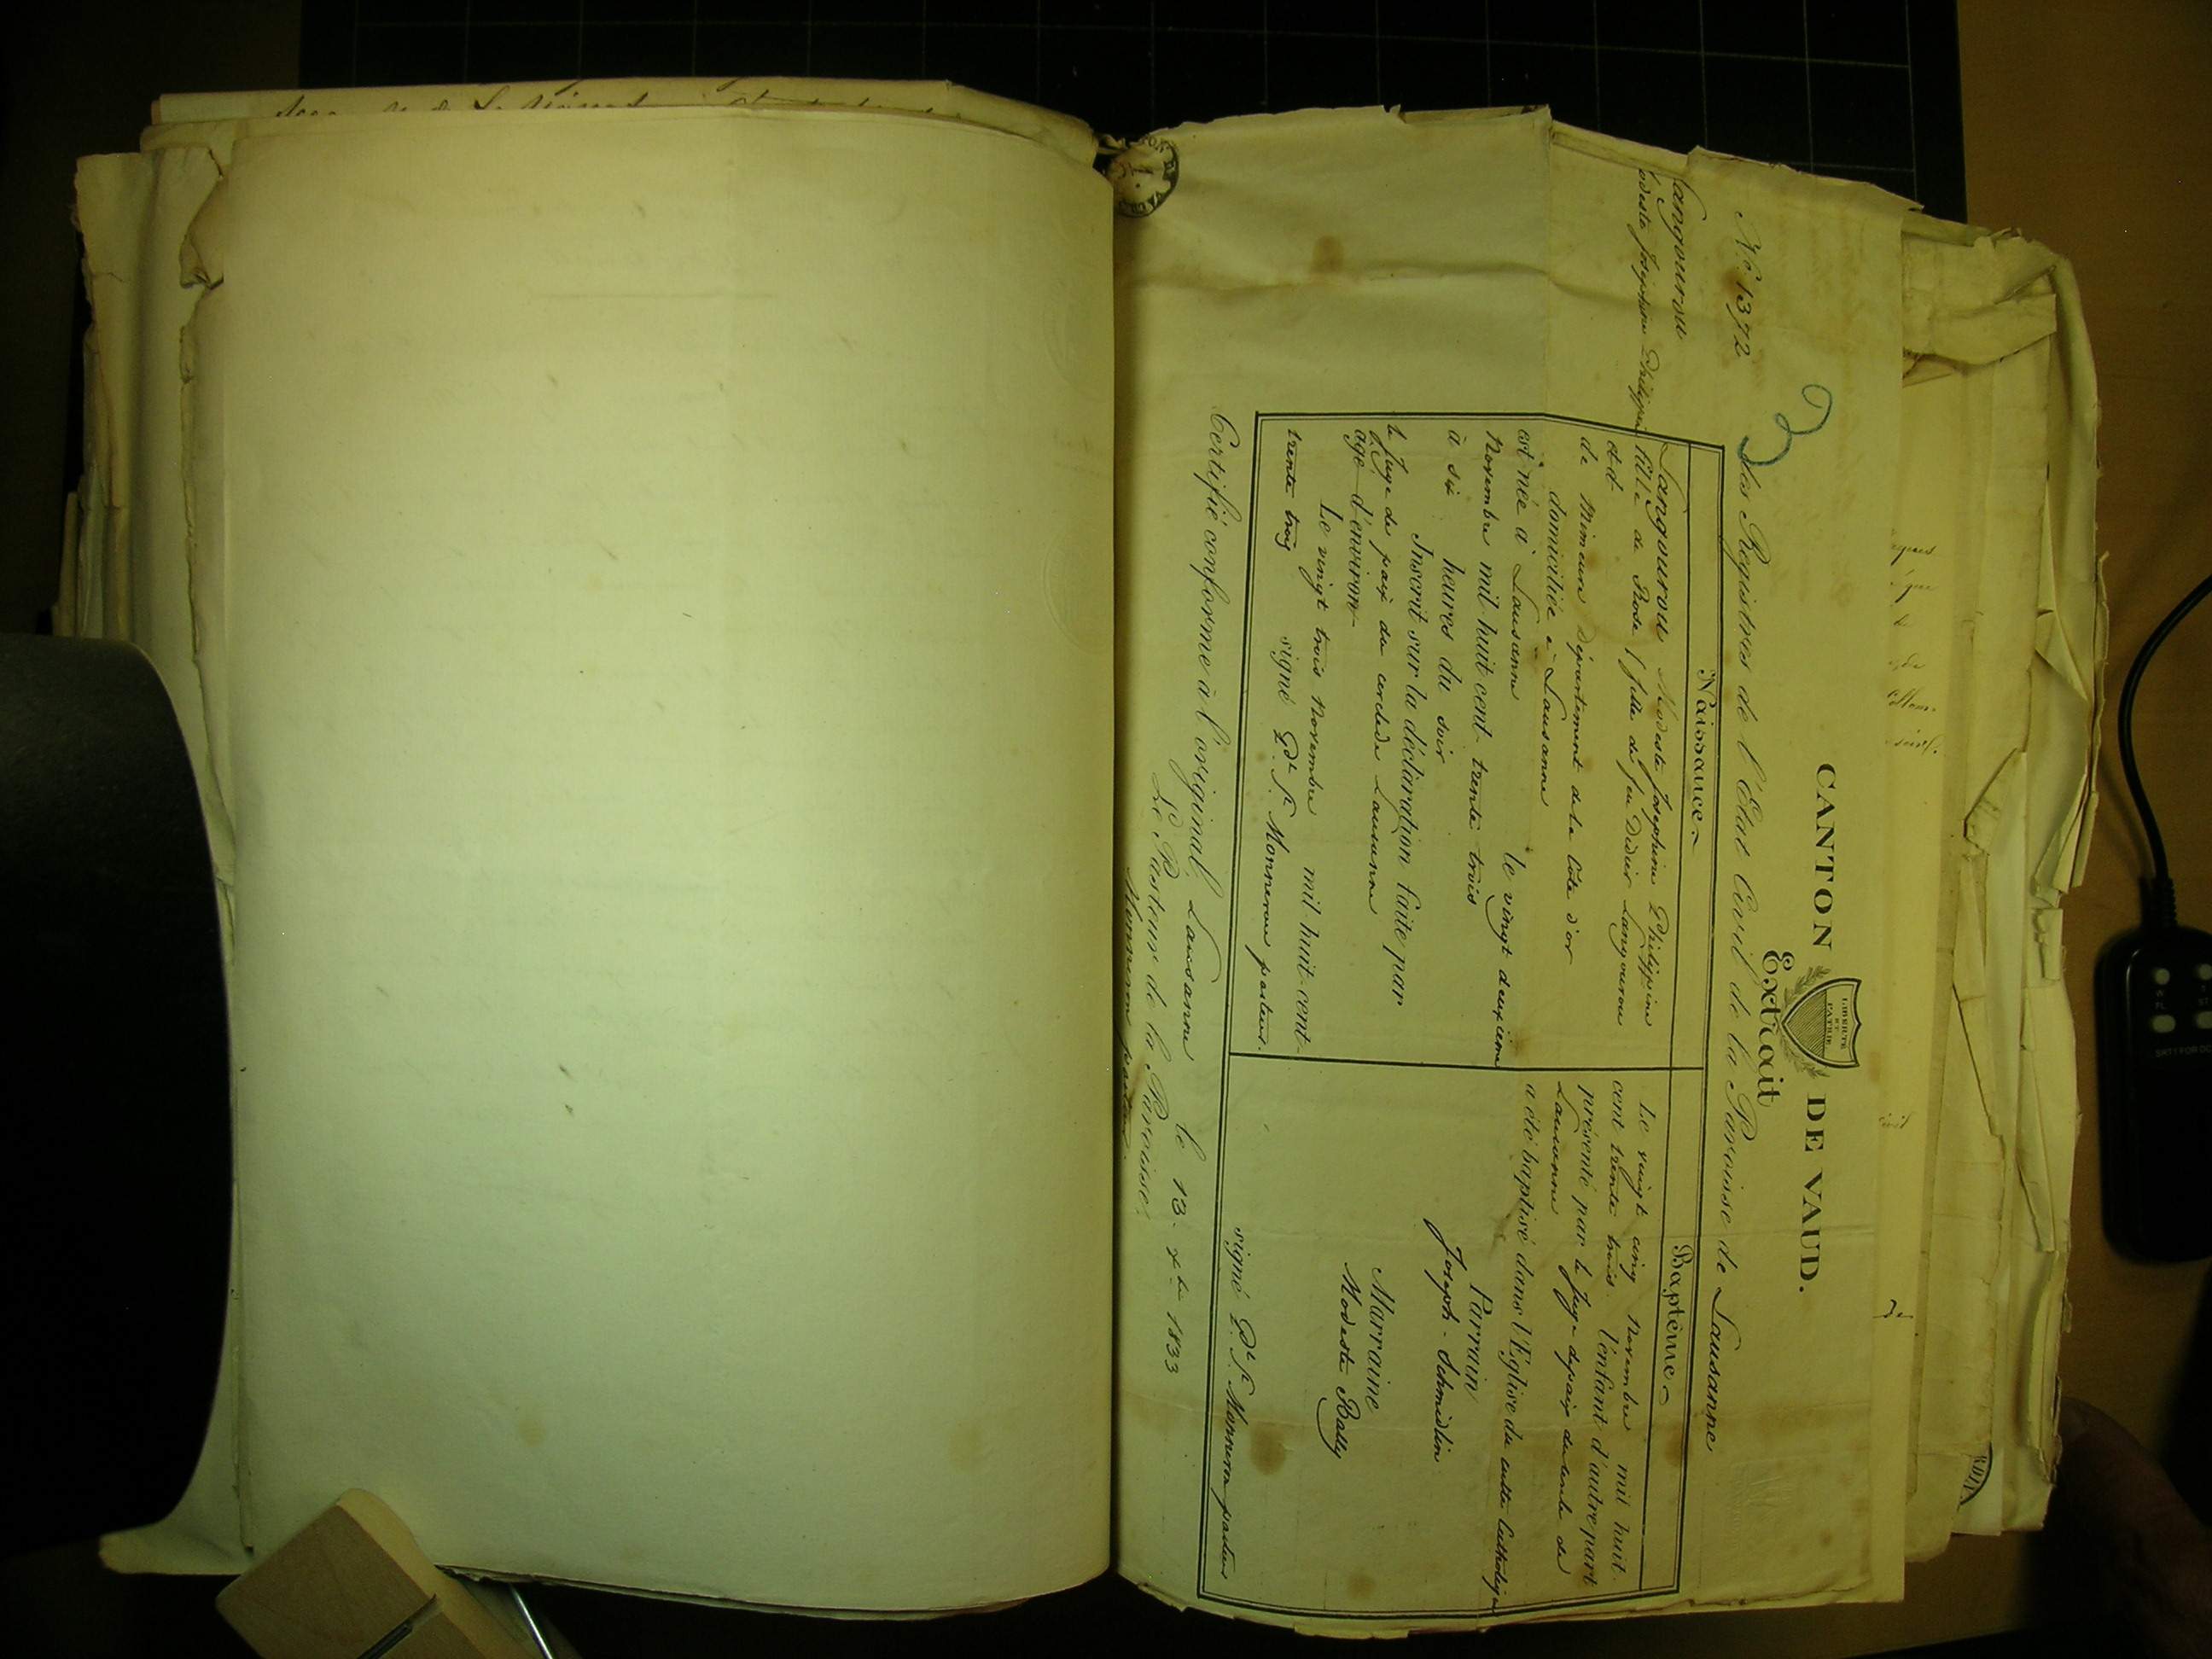 N.° 1372
CANTON DE VAUD.
LIBERTÉ
ET
PATRIE
Extrait
des Registres de l'Etat Civil de la Paroisse de Lausanne
Langourou
Modeste Joséphine Philippine
Naissance
Langourou Modeste Joséphine Philippine
fille de Rose / fille de feu Didier Langourou
et d
de Mimeure département de la Côte d'or
domiciliée à Lausanne
est née à Lausanne le vingt deuxième
Novembre mil huit cent trente trois
à six heures du soir
Inscrit sur la déclaration faite par
le Juge de paix du cercle de Lausanne
âgé d'environ
Le vingt trois Novembre mil huit-cent-
trente trois
signé Monneron pasteur.
Baptême
Le vingt cinq Novembre mil huit
cent trente trois l'enfant d'autre part
présenté par le Juge de paix du cercle de
Lausanne
a été baptisé dans l'Eglise du culte Catholique
Parrain
Joseph Schmidlin
Marraine
Modeste Bally
signé Monneron pasteur
Certifié conforme à l'original, Lausanne le 13. Xbre 1833
Le Pasteur de la Paroisse.
Monneron pasteur